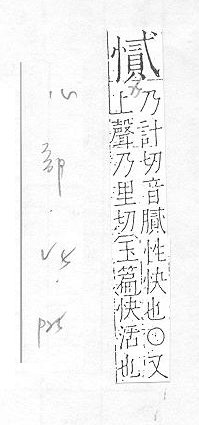 㦅
乃計切音膩性快也⊙又
上聲乃里切玉篇快活也
心部.V4.